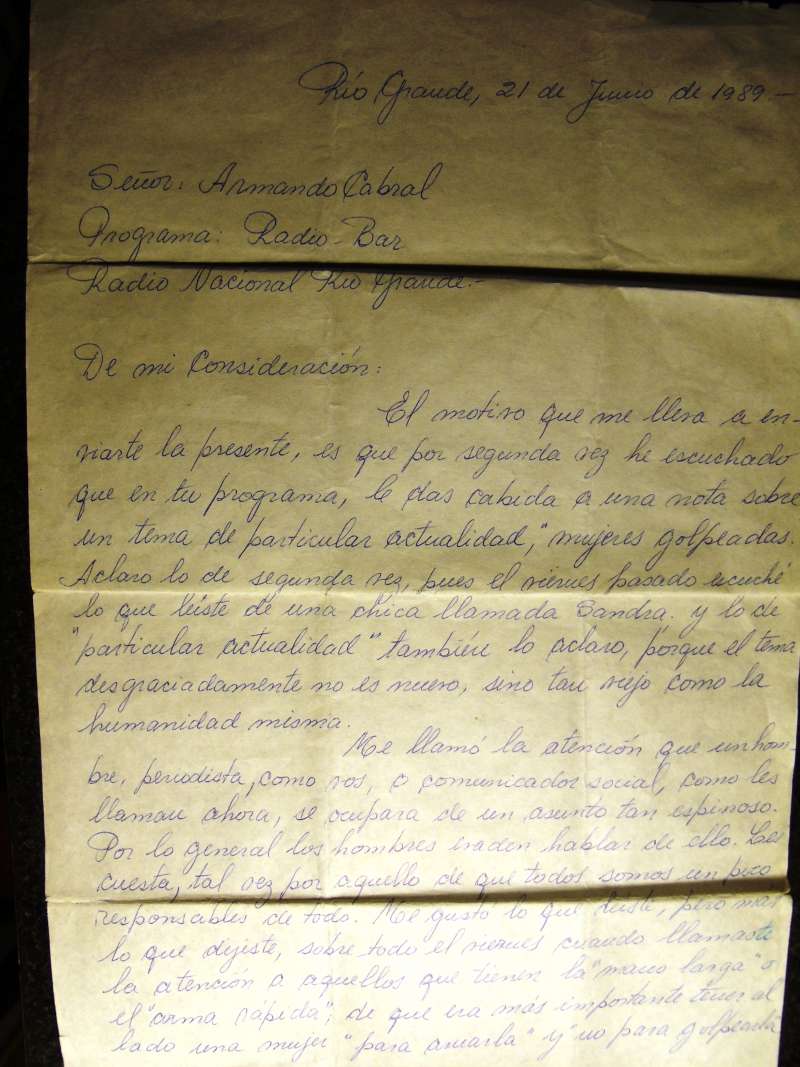 Río Grande, 21 de Junio de 1989.-
Señor: Armando Cabral
Programa: Radio-Bar
Radio Nacional Río Grande.-
De mi Consideración:
El motivo que me lleva a en-
viarte la presente, es que por segunda vez he escuchado
que en tu programa, le das cabida a una nota sobre
un tema de particular actualidad, "mujeres golpeadas.
Aclaro lo de segunda vez, pues el viernes pasado escuché
lo que leíste de una chica llamada Sandra. y lo de
"particular actualidad" también lo aclaro, porque el tema
desgraciadamente no es nuevo, sino tan viejo como la
humanidad misma.
Me llamó la atención que un hom-
bre, periodista, como vos, o comunicador social, como les
llaman ahora, se ocupara de un asunto tan espinoso.
Por lo general los hombres evaden hablar de ello. Les
cuesta, tal vez por aquello de que todos somos un poco
responsables de todo. Me gustó lo que leíste, pero más
lo que dejiste, sobre todo el viernes cuando llamaste
la atención a aquellos que tienen la "mano larga" o
el "arma rápida"; de que era más importante tener al
lado una mujer "para amarla" y "no para golpearla